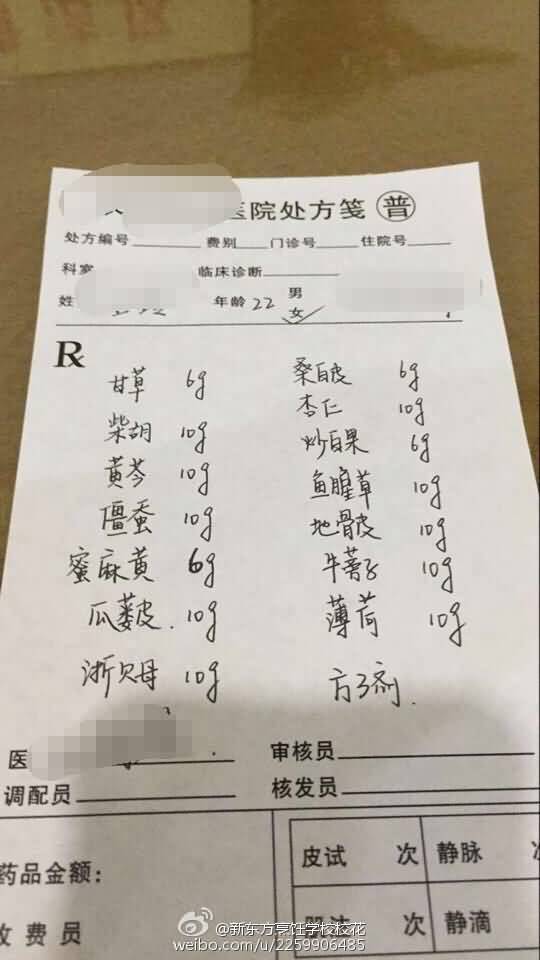 医院处方笺 普
处方编号 费别 门诊号 住院号
科室 临床诊断
姓 年龄 22 男 女
R
甘草 6g 桑白皮 6g
柴胡 10g 杏仁 10g
黄芩 10g 炒白果 6g
僵蚕 10g 鱼腥草 10g
蜜麻黄 6g 地骨皮 10g
瓜蒌皮 10g 牛蒡子 10g
浙贝母 10g 薄荷 10g
方3剂
医 审核员
调配员 核发员
药品金额: 皮试 次 静脉
收费员 次 静滴
@新东方烹饪学校校花
weibo.com/u/2259906485